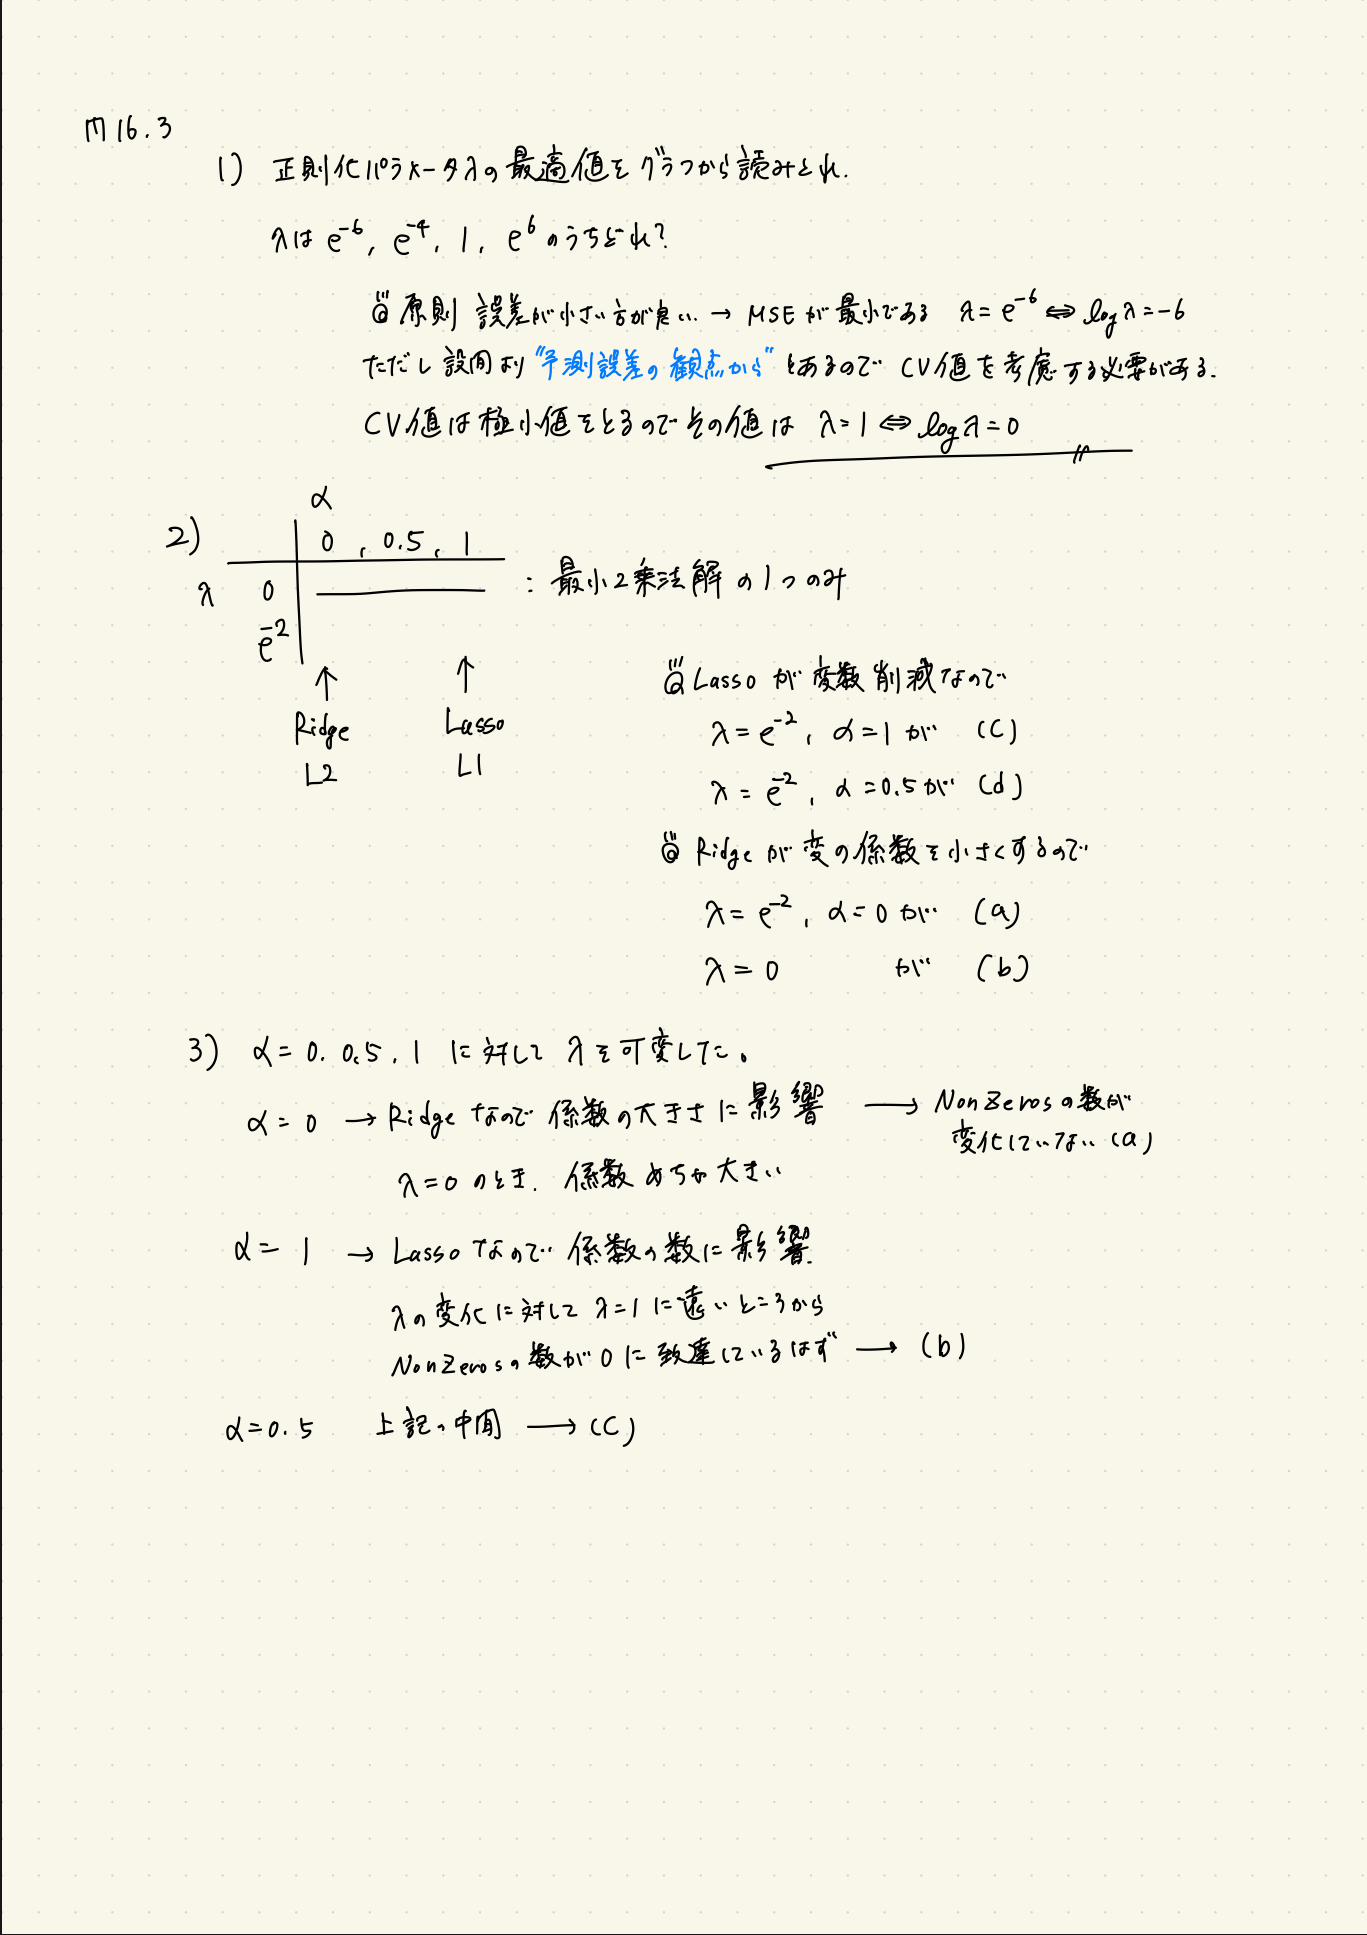 m16.3
1) 正則化パラメータλの最適値をグラフから読みとれ.
λは e⁻⁶, e⁻⁴, 1, e⁶ のうちどれ?
原則 誤差が小さい方が良い. → MSEが最小である λ=e⁻⁶ ⇔ logλ=-6
ただし設問より "予測誤差の観点から" とあるので CV値を考慮する必要がある.
CV値は極小値をとるのでその値は λ=1 ⇔ logλ=0
α
2) 0 , 0.5 , 1
λ 0 : 最小2乗法解の1つのみ
e⁻²
↑ ↑
Ridge Lasso
L2 L1
Lassoが変数削減なので
λ=e⁻², α=1が (c)
λ=e⁻², α=0.5が (d)
Ridgeが変の係数を小さくするので
λ=e⁻², α=0が (a)
λ=0 が (b)
3) α=0. 0.5, 1 に対して λを可変した。
α=0 → Ridgeなので係数の大きさに影響 → NonZerosの数が
変化していない (a)
λ=0のとき. 係数めちゃ大きい
α=1 → Lassoなので係数の数に影響.
λの変化に対して λ=1に遠いところから
NonZerosの数が0に到達しているはず → (b)
α=0.5 上記の中間 → (c)